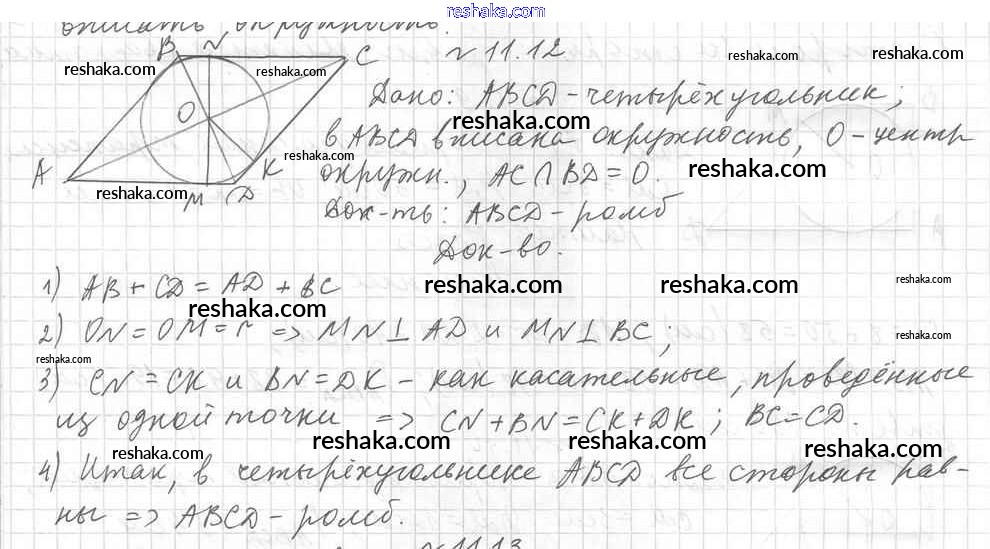 reshaka.com
вписать окружность.
B N C № 11.12
reshaka.com reshaka.com reshaka.com reshaka.com
Дано: ABCD - четырёхугольник;
O reshaka.com
в ABCD вписана окружность, O - центр
A K reshaka.com reshaka.com
окружн., AC∩BD=O.
reshaka.com M D
Док-ть: ABCD - ромб
Док-во.
1) AB + CD = AD + BC
reshaka.com reshaka.com reshaka.com reshaka.com
2) ON = OM = r => MN⊥AD и MN⊥BC;
reshaka.com reshaka.com
3) CN = CK и BN = DK - как касательные, проведённые
из одной точки => CN + BN = CK + DK; BC = CD.
reshaka.com reshaka.com reshaka.com reshaka.com
4) Итак, в четырёхугольнике ABCD все стороны рав-
ны => ABCD - ромб.
№ 11.13